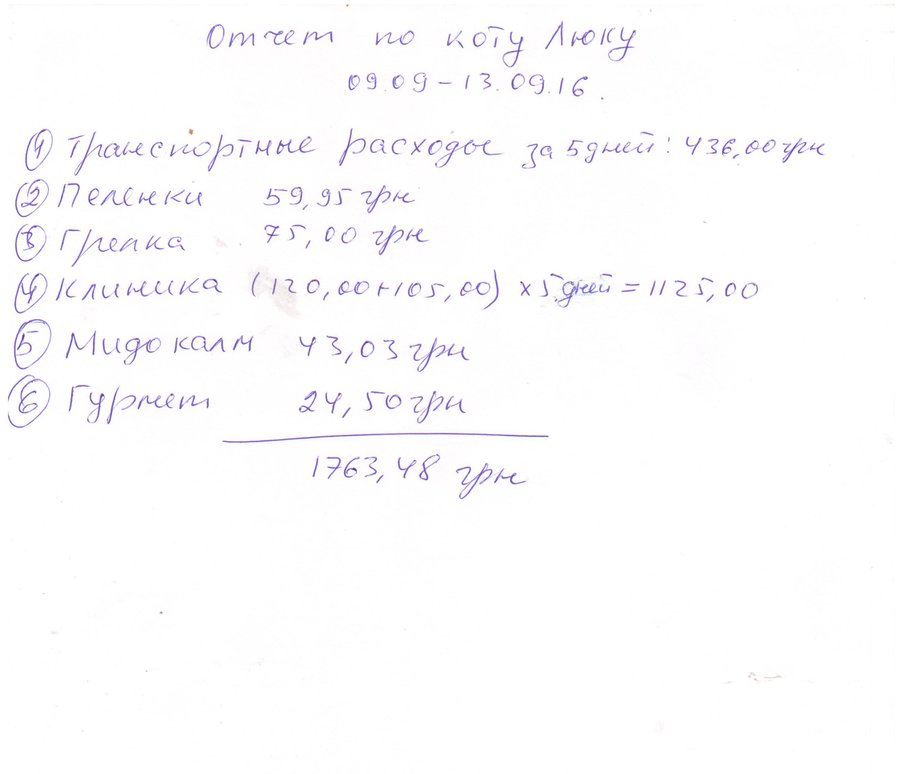 Отчет по коту Люку
09.09 – 13.09.16.
① Транспортные расходы за 5 дней: 436,00 грн
② Пеленки 59,95 грн
③ Грелка 75,00 грн
④ Клиника (120,00+105,00) х 5 дней = 1125,00
⑤ Мидокалм 43,03 грн
⑥ Гурмет 24,50 грн
1763,48 грн